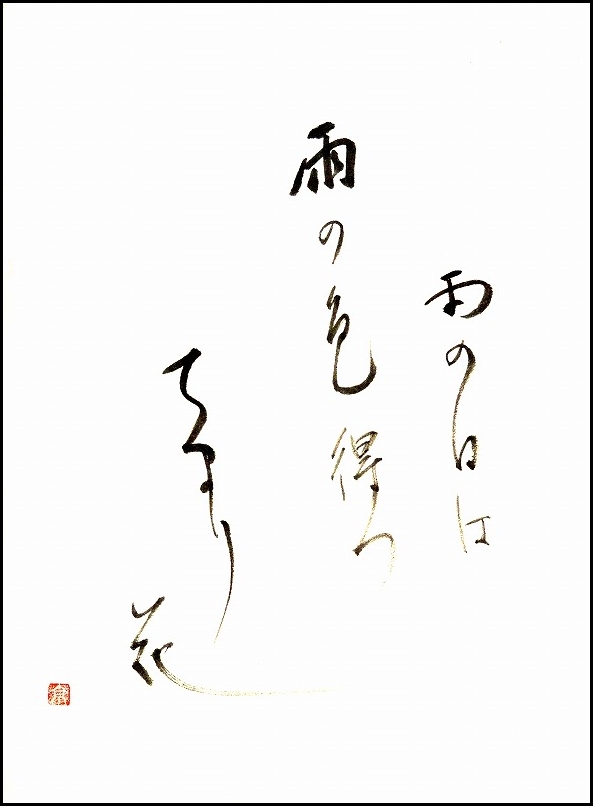 雨の日は
雨の色得つ
てまり花